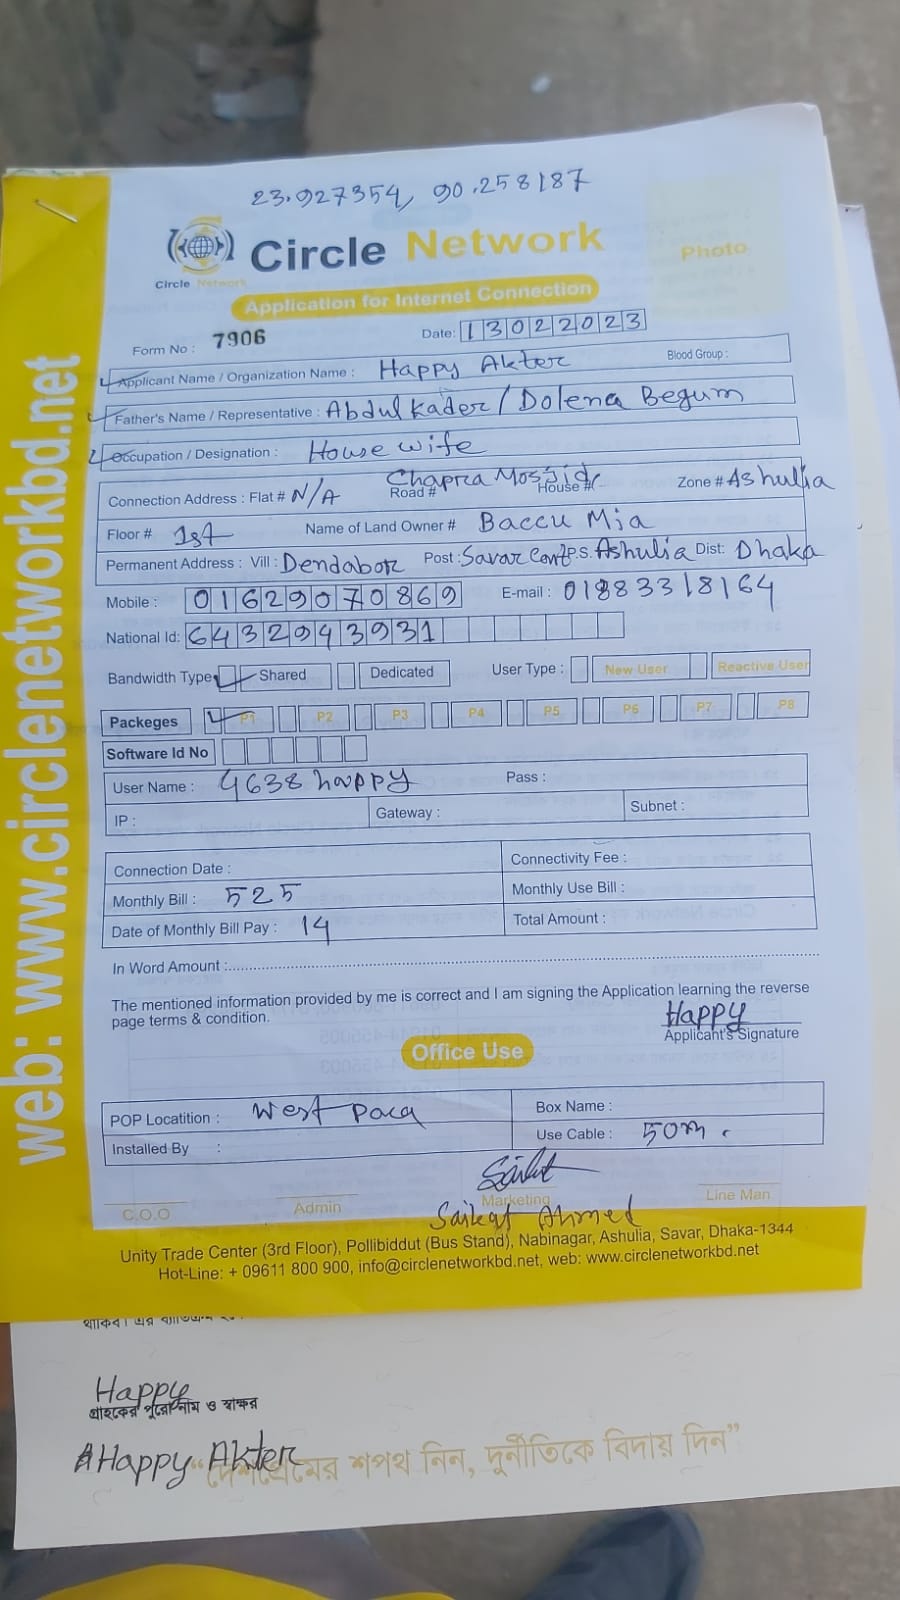 23.927354, 90.258187
Circle Network
Circle Network
Photo
Application for Internet Connection
Form No : 7906
Date: 13022023
Applicant Name / Organization Name : Happy Akter Blood Group :
Father's Name / Representative : Abdul kader / Dolena Begum
Occupation / Designation : House wife
Connection Address : Flat # N/A Road # Chapra Mosjid House # Zone # Ashulia
Floor # 1st Name of Land Owner # Baccu Mia
Permanent Address : Vill : Dendabor Post : Savar Cant P.S. Ashulia Dist: Dhaka
Mobile : 01629070869 E-mail : 01883318164
National Id: 6432943931
Bandwidth Type Shared Dedicated User Type : New User Reactive User
Packeges P1 P2 P3 P4 P5 P6 P7 P8
Software Id No
User Name : 4638happy Pass :
IP : Gateway : Subnet :
Connection Date : Connectivity Fee :
Monthly Bill : 525 Monthly Use Bill :
Date of Monthly Bill Pay : 14 Total Amount :
In Word Amount :
The mentioned information provided by me is correct and I am signing the Application learning the reverse
page terms & condition.
Happy
Applicant's Signature
Office Use
POP Locatition : West para Box Name :
Installed By : Use Cable : 50m.
C.O.O Admin Marketing Line Man
Saikat Ahmed
Unity Trade Center (3rd Floor), Pollibiddut (Bus Stand), Nabinagar, Ashulia, Savar, Dhaka-1344
Hot-Line: + 09611 800 900, info@circlenetworkbd.net, web: www.circlenetworkbd.net
web: www.circlenetworkbd.net
Happy
গ্রাহকের পুরো নাম ও স্বাক্ষর
Happy Akter
“দেশপ্রেমের শপথ নিন, দুর্নীতিকে বিদায় দিন”